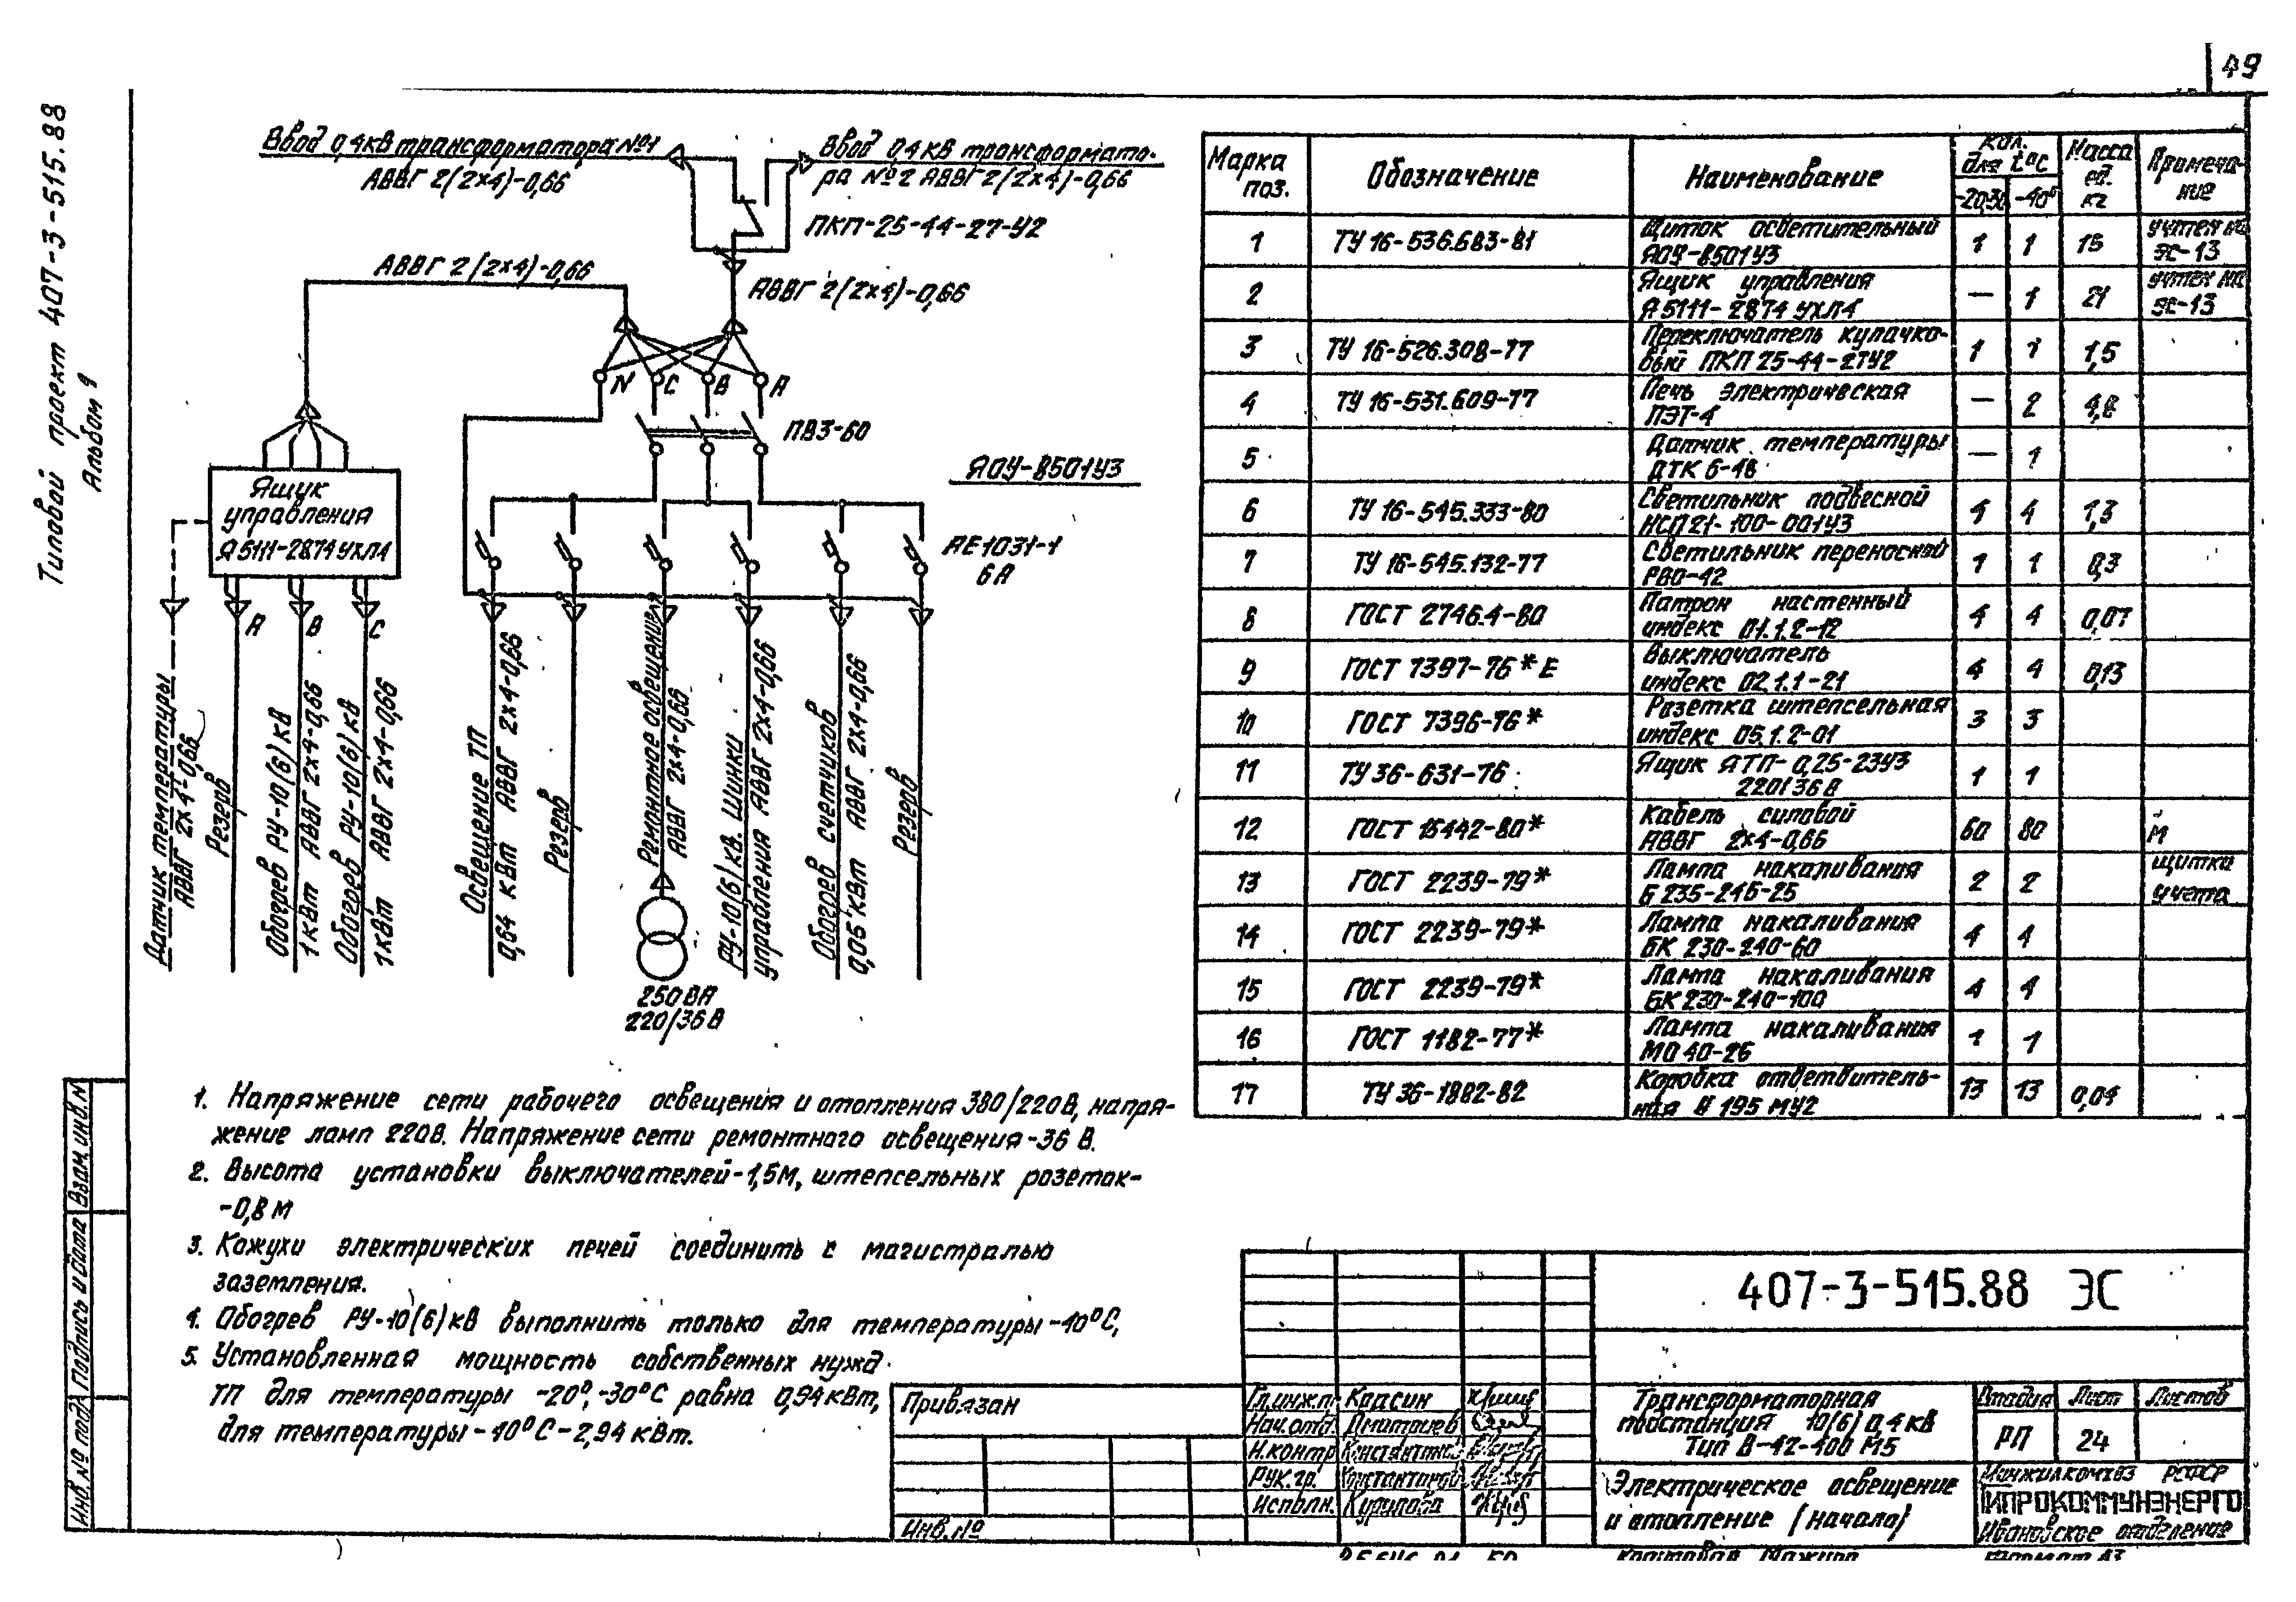 49
Типовой проект 407-3-515.88
Альбом 9
Ввод 0,4кВ трансформатора №1
АВВГ 2(2х4)-0,66
Ввод 0,4 кВ трансформато-
ра №2 АВВГ 2(2х4)-0,66
ПКП-25-44-27-У2
АВВГ 2(2х4)-0,66
АВВГ 2(2х4)-0,66
N С В А
ПВ3-60
ЯОУ-8501У3
Ящик
управления
Я5111-2874 УХЛ4
АЕ1031-1
6А
А В С
Датчик температуры
АВВГ 2х4-0,66
Резерв
Обогрев РУ-10(6)кВ
1кВт АВВГ 2х4-0,66
Обогрев РУ-10(6)кВ
1кВт АВВГ 2х4-0,66
Освещение ТП
0,64 кВт АВВГ 2х4-0,66
Резерв
Ремонтное освещение
АВВГ 2х4-0,66
250ВА
220/36 В
РУ-10(6)кВ. Шинки
управления АВВГ 2х4-0,66
Обогрев счетчиков
0,05 кВт АВВГ 2х4-0,66
Резерв
1. Напряжение сети рабочего освещения и отопления 380/220В, напря-
жение ламп 220В. Напряжение сети ремонтного освещения-36 В.
2. Высота установки выключателей-1,5м, штепсельных розеток-
-0,8 м
3. Кожухи электрических печей соединить с магистралью
заземления.
4. Обогрев РУ-10(6)кВ выполнить только для температуры -40°С,
5. Установленная мощность собственных нужд
ТП для температуры -20°,-30°С равна 0,94кВт,
для температуры -40°С-2,94 кВт.
Марка поз. Обозначение Наименование Кол. для t°С -20,30 -40° Масса ед. кг Примеча-ние
1 ТУ 16-536.683-81 Щиток осветительный ЯОУ-8501У3 1 1 15 учтен на ЭС-13
2 Ящик управления Я5111-2874 УХЛ4 — 1 21 учтен на ЭС-13
3 ТУ 16-526.308-77 Переключатель кулачко-вый ПКП 25-44-27У2 1 1 1,5
4 ТУ 16-531.609-77 Печь электрическая ПЭТ-4 — 2 4,8
5 Датчик температуры ДТКБ-48 — 1
6 ТУ 16-545.333-80 Светильник подвесной НСП21-100-001У3 4 4 1,3
7 ТУ 16-545.132-77 Светильник переносной РВО-42 1 1 0,3
8 ГОСТ 2746.4-80 Патрон настенный индекс 01.1.2-12 4 4 0,07
9 ГОСТ 7397-76*Е Выключатель индекс 02.1.1-21 4 4 0,13
10 ГОСТ 7396-76* Розетка штепсельная индекс 05.1.2-01 3 3
11 ТУ 36-631-76 Ящик ЯТП-0,25-23У3 220/36 В 1 1
12 ГОСТ 16442-80* Кабель силовой АВВГ 2х4-0,66 60 80 м
13 ГОСТ 2239-79* Лампа накаливания Б 235-245-25 2 2 щитка учета
14 ГОСТ 2239-79* Лампа накаливания БК 230-240-60 4 4
15 ГОСТ 2239-79* Лампа накаливания БК 230-240-100 4 4
16 ГОСТ 1182-77* Лампа накаливания МО 40-25 1 1
17 ТУ 36-1882-82 Коробка ответвитель-ная У 195 МУ2 13 13 0,04
Взам. инв. №
Подпись и дата
Инв. № подл.
Привязан
Инв.№
407-3-515.88 ЭС
Гл.инж.пр. Красин
Нач.отд. Дмитриев
Н.контр
Рук.гр.
Исполн.
Трансформаторная
подстанция 10(6)0,4кВ
Тип В-42-400 М5
Электрическое освещение
и отопление (начало)
Стадия Лист Листов
РП 24
Минжилкомхоз РСФСР
ГИПРОКОММУНЭНЕРГО
Ивановское отделение
Формат А3